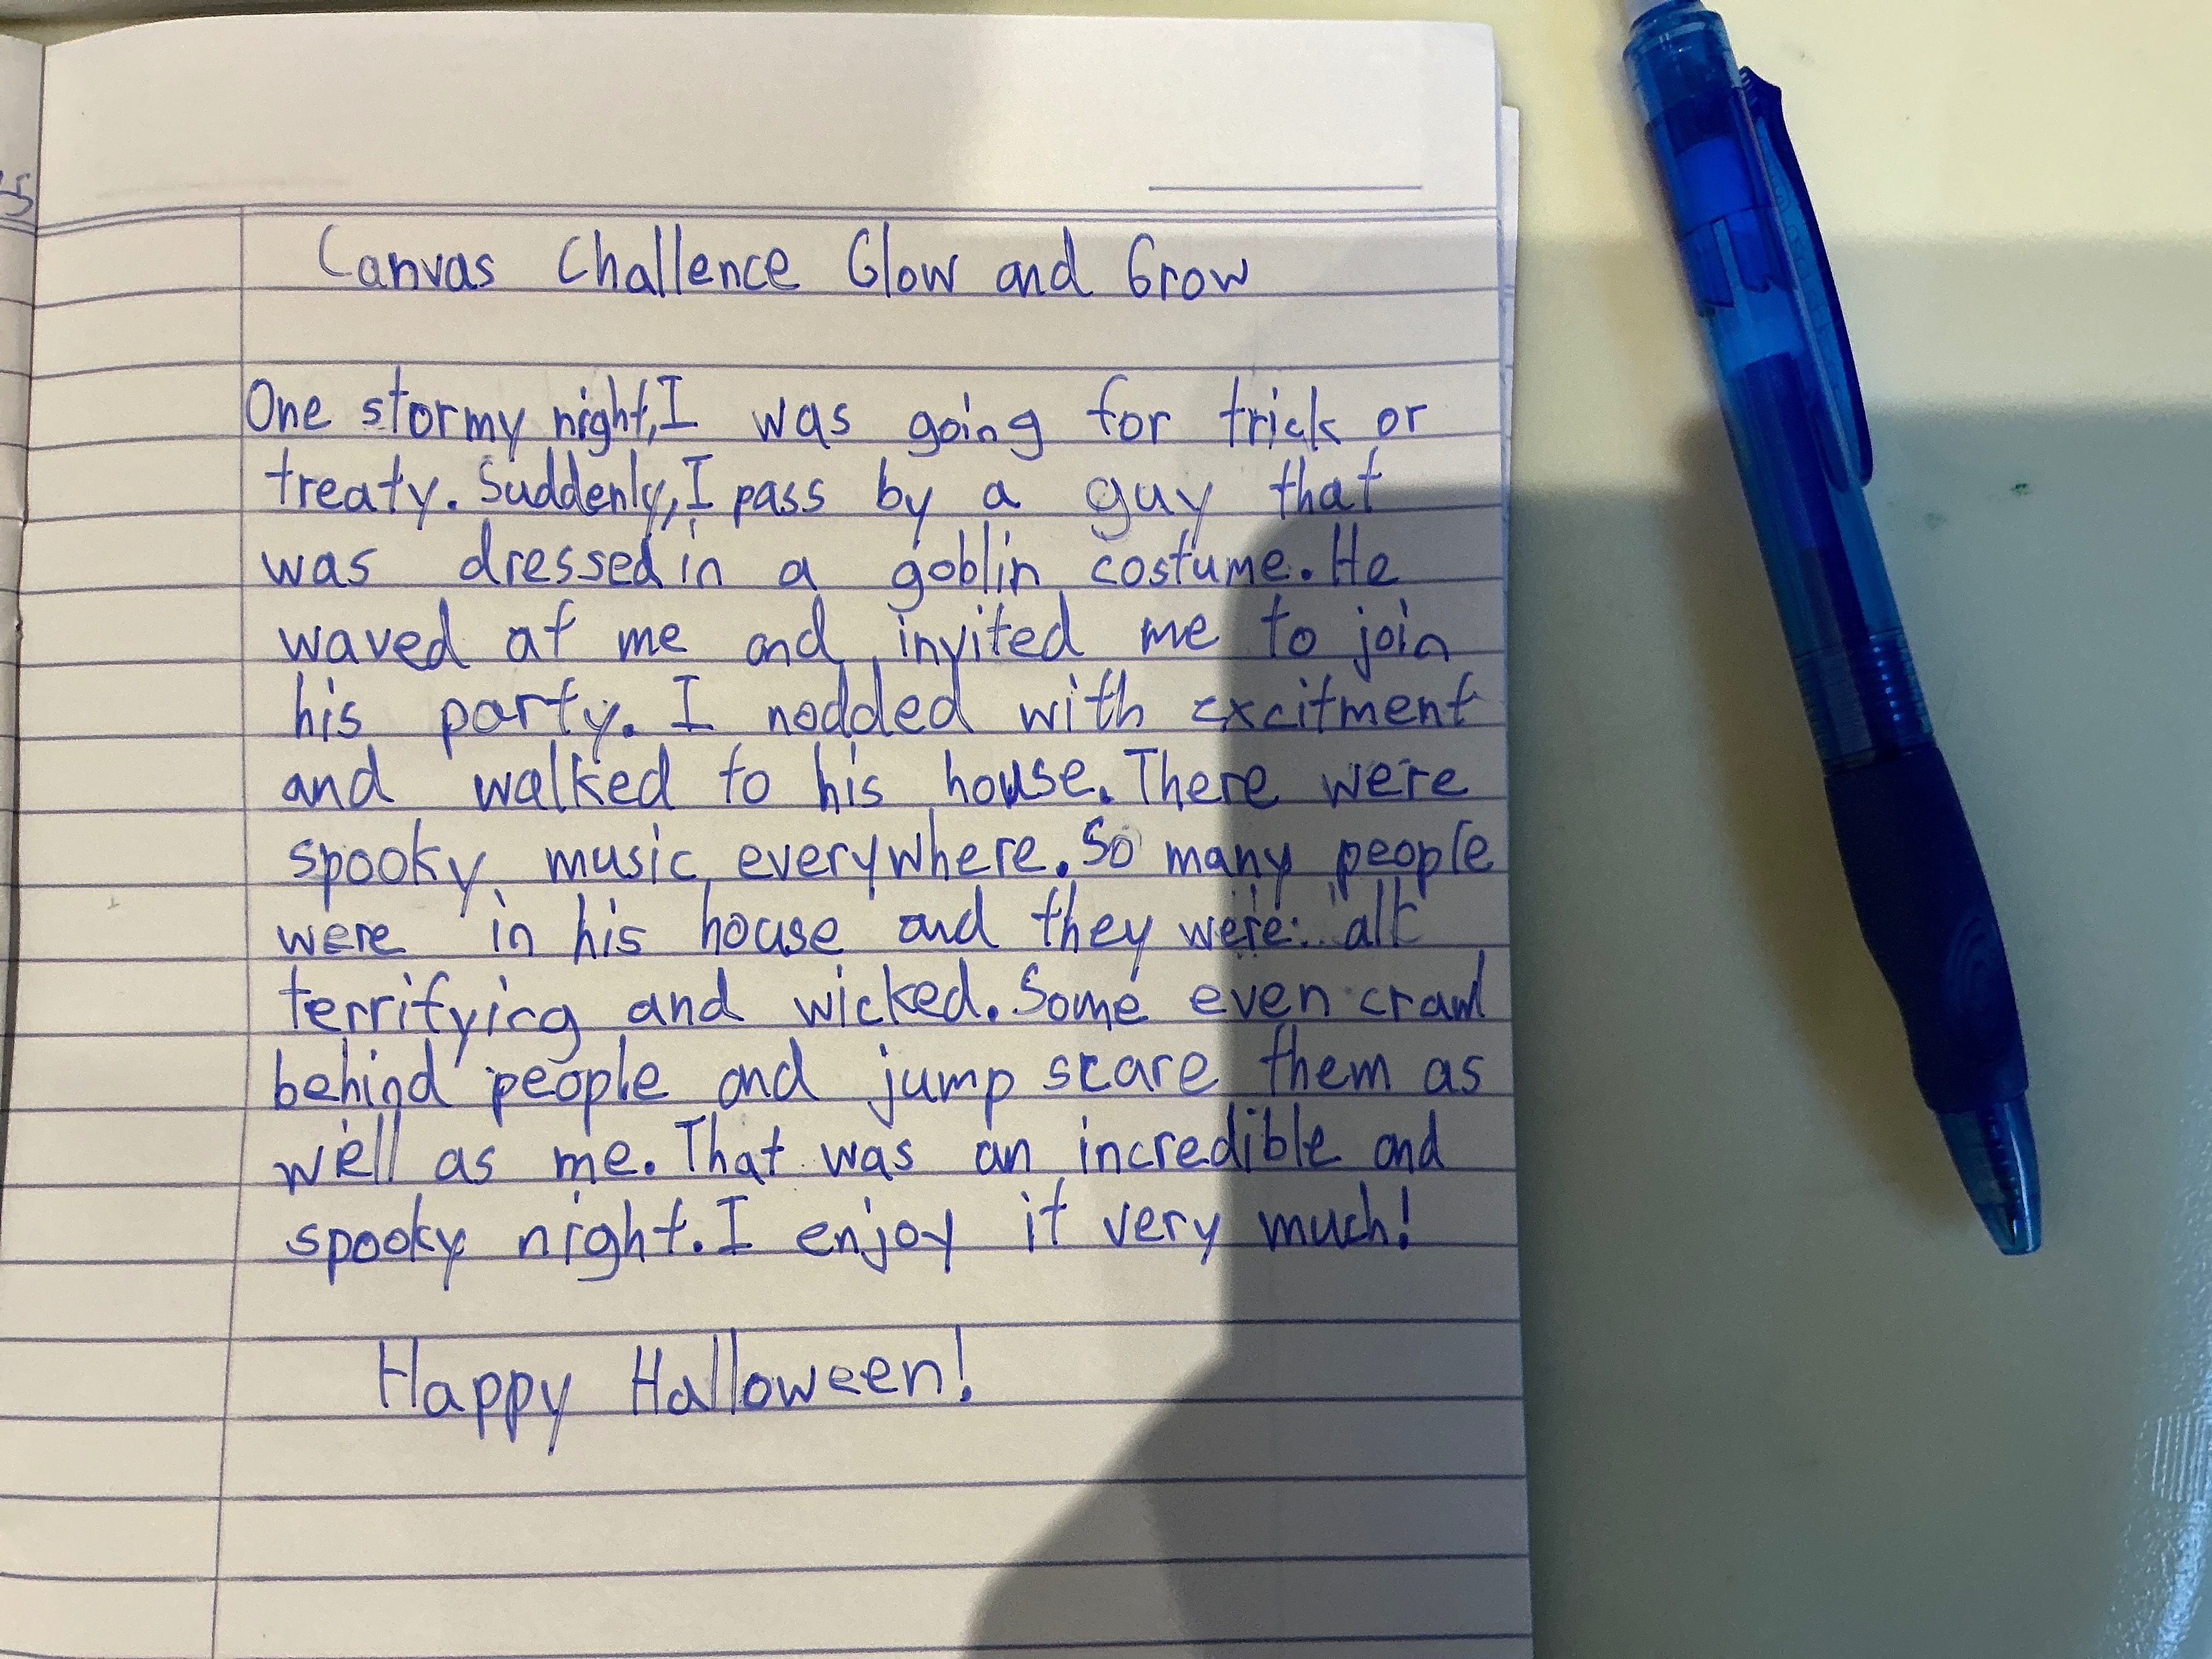 Canvas Challence Glow and Grow
One stormy night, I was going for trick or
treaty. Suddenly, I pass by a guy that
was dressed in a goblin costume. He
waved at me and invited me to join
his party. I nodded with excitment
and walked to his house. There were
spooky music everywhere. So many people
were in his house and they were all
terrifying and wicked. Some even crawl
behind people and jump scare them as
well as me. That was an incredible and
spooky night. I enjoy it very much!
Happy Halloween!